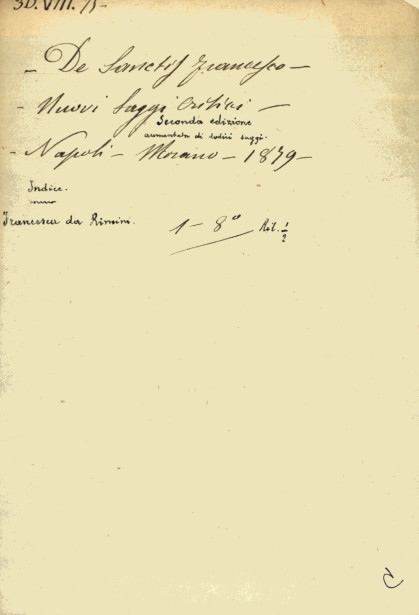 3D.VIII.15-
- De Sanctis Francesco -
- Nuovi Saggi Critici -
Seconda edizione
aumentata di dodici saggi.
- Napoli - Morano - 1879 -
Indice.
Francesca da Rimini.
1 - 8° Ril. 1/2